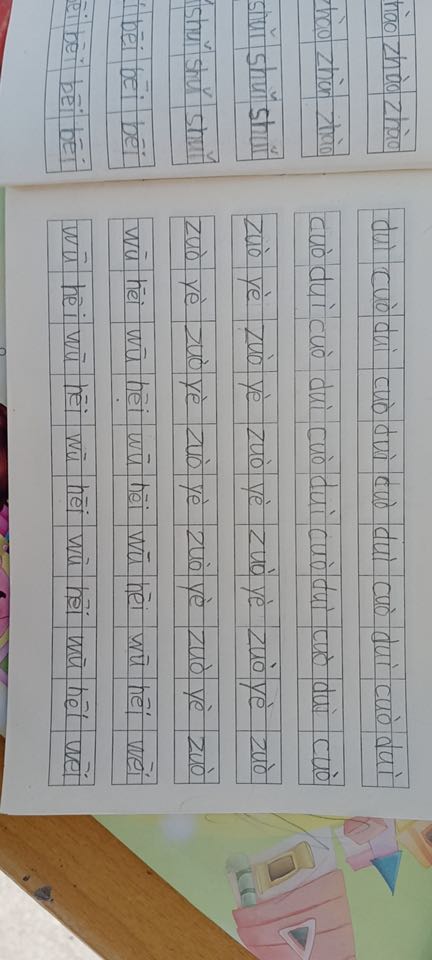 zhào zhào
zhào zhào
shuǐ shuǐ
shuǐ shuǐ
bēi bēi bēi
bēi bēi bēi
duì cuò duì cuò duì cuò duì cuò duì cuò duì
cuò duì cuò duì cuò duì cuò duì cuò duì cuò
zuò yè zuò yè zuò yè zuò yè zuò yè zuò
zuò yè zuò yè zuò yè zuò yè zuò yè zuò
wū hēi wū hēi wū hēi wū hēi wū hēi wēi
wū hēi wū hēi wū hēi wū hēi wū hēi wēi